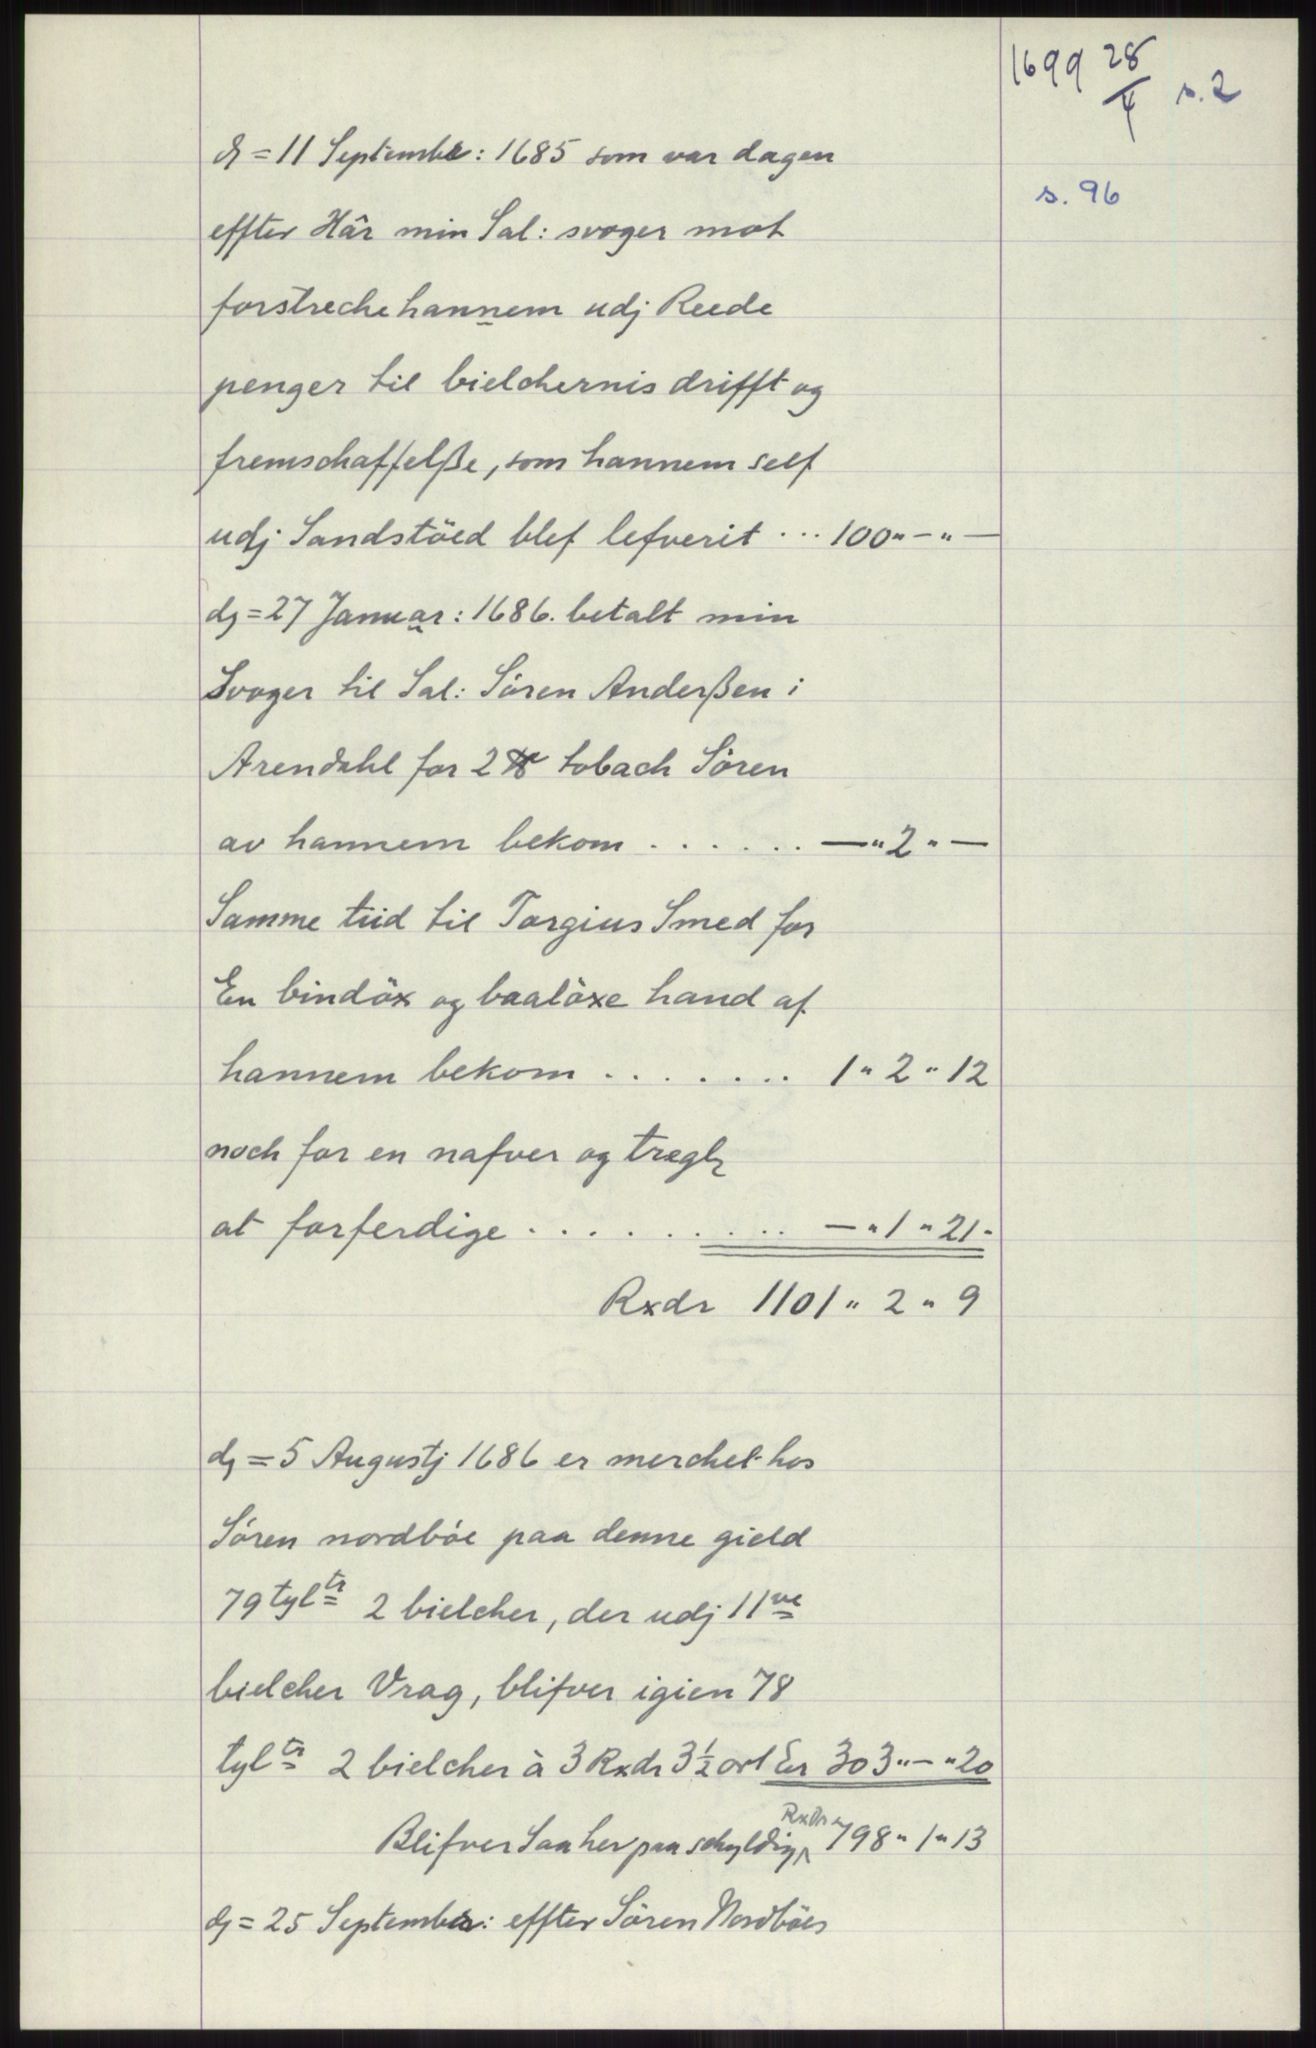 1699 28/4 s. 2
s. 96
dj = 11 Septembr: 1685 som var dagen
effter Hâr min Sal: svoger mot
forstreche hannem udj Reede
penger til bielchernis drifft og
fremschaffelße, som hannem self
udj Sandstöed blef lefverit ... 100 „ - „ -
dj = 27 Januar: 1686. betalt min
Svoger til Sal: Sören Anderßen i
Arendahl for 2 ℔ tobach Sören
av hannem bekom . . . . . . — „ 2 „ —
Samme tiid til Torgius Smed for
En bindöx og baalöxe hand af
hannem bekom . . . . . . . 1 „ 2 „ 12
noch for en nafver og tregl
at forferdige . . . . . . . . . . — „ 1 „ 21.
Rxdr 1101 „ 2 „ 9
dj = 5 Augustj 1686 er merchet hos
Sören nordböe paa denne gield
79 tyltr 2 bielcher, der udj 11ve
bielcher Vrag, blifver igien 78
tyltr 2 bielcher à 3 Rxdr 3½ ort Er 303 „ - „ 20
Blifver Saa her paa schyldig Rxdr 798 „ 1 „ 13
dj = 25 Septembr: effter Sören Nordböes